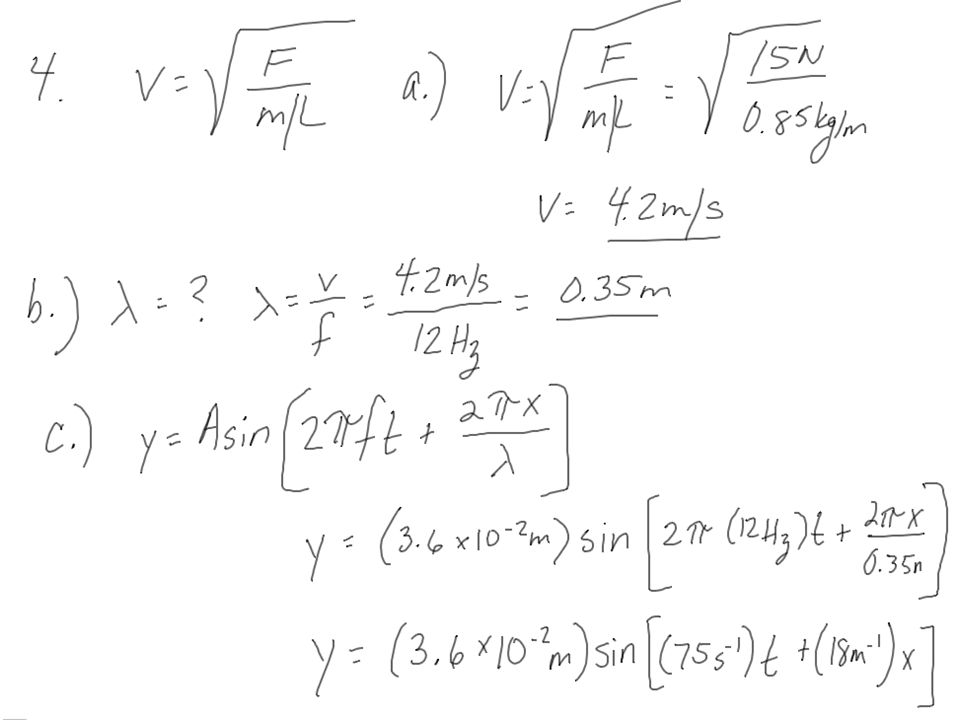 4. V = √(F / m/L) a.) V = √(F / m/L) = √(15N / 0.85 kg/m)
V = 4.2 m/s
b.) λ = ? λ = v / f = 4.2 m/s / 12 Hz = 0.35 m
c.) y = A sin [2πft + 2πx / λ]
y = (3.6 × 10⁻² m) sin [2π (12 Hz)t + 2πx / 0.35m]
y = (3.6 × 10⁻² m) sin [(75 s⁻¹) t + (18 m⁻¹) x]